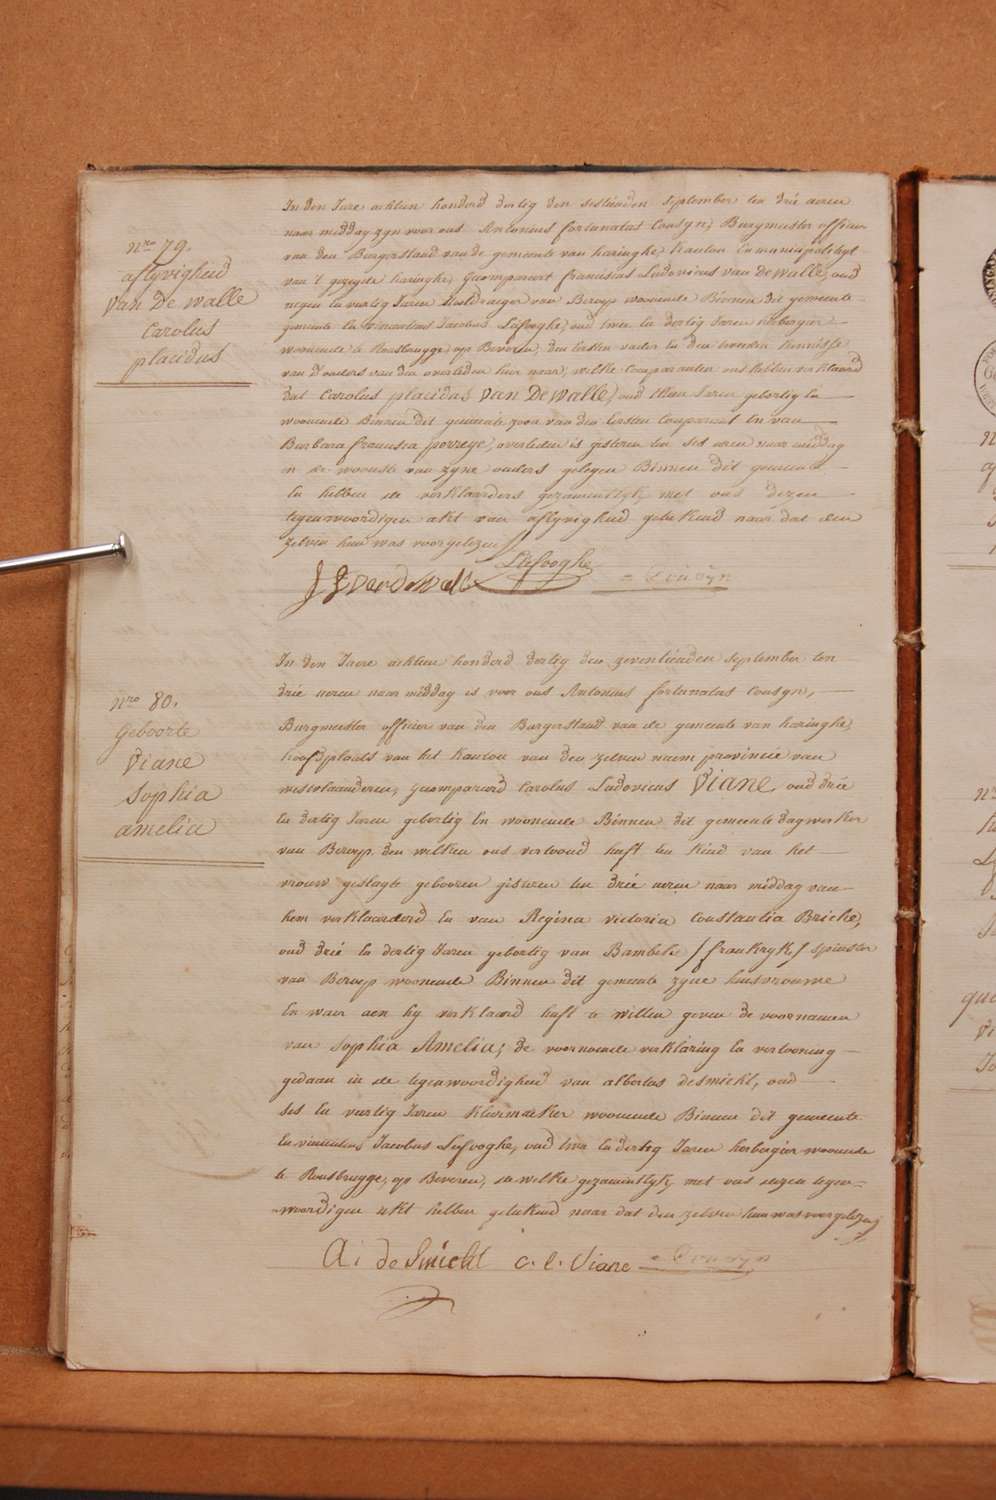 nro 79.
aflyvigheid
van De walle
Carolus
placidus
In den Jare achtien honderd dertig den sesthienden september ten drie uren
naer middag zyn voor ons Antonius fortunatus Cousyn, Burgmeester officier
van den Burgerstand van de gemeente van haringhe, kanton
van 't gezegde haringhe, Gecompareert franciscus Ludovicus van De walle, oud
negen en veertig Jaren van Beroep woonende Binnen dit gemeente
gemeente en vincentius Jacobus Lefvoghe, oud twee en dertig Jaren herbergier
woonende te Rousbrugge, op Beveren, den Eersten vader en den tweeden kennisse
van d'ouders van den overleden hier naer, welke Comparanten ons hebben verklaard
dat Carolus placidus Van De Walle, oud Jaren gebortig en
woonende Binnen dit gemeente zoon van den Eersten Comparant En van
Barbara francisca poreye, overleden is gisteren ten ses uren naer middag
in de wooninge van zyne ouders gelegen Binnen dit gemeente
En hebben de verklaarders gezamentlyk met ons dezen
tegenwoordigen akt van aflyvigheid geteekend naer dat den
zelven hun was voorgelezen
vandewalle Lefvoghe Cousyn
nro 80.
Geboorte
Viane
Sophia
amelia
In den Jaere achtien honderd dertig den zeventienden september ten
drie uren naer middag is voor ons Antonius fortunatus Cousyn,
Burgmeester officier van den Burgerstand van de gemeente van haringhe,
hoofdplaets van het kanton van den zelven naem provincie van
westvlaanderen, gecompareerd Carolus Ludovicus Viane, oud drie
En dertig Jaren gebortig En woonende Binnen dit gemeente dagwerker
van Beroep. den welken ons vertoond heeft een kind van het
vrouw geslagte gebooren gisteren ten drie uren naer middag van
hem verklaarderd En van Regina victoria Constantia Bricke,
oud drie en dertig Jaren gebortig van Bambeke /frankryk/ spinster
van Beroep woonende Binnen dit gemeente zyne huisvrouwe
En waer aen hy verklaard heeft te willen geven de voornamen
van Sophia Amelia; de voornoemde verklaring En vertooning
gedaan in de tegenwoordigheid van albertus desmicht, oud
ses En veertig Jaren kleermaeker woonende Binnen dit gemeente
En vincentius Jacobus Lefvoghe, oud twee En dertig Jaren herbergier woonende
te Rousbrugge, op Beveren, de welke gezamentlyk met ons dezen tegen-
woordigen akt hebben geteekend naer dat den zelven hun was voorgelezen
A: de Smicht C. L. Viane Cousyn